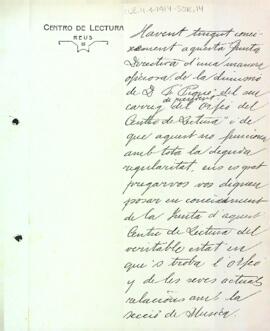 CENTRO DE LECTURA
REUS
Havent tingut conei-
xement aquesta Junta
Directiva d'una manera
oficiosa de la dimissió
de D. F. Piqué del seu
carreg de president del Orfeó del
Centro de Lectura i de
que aquest no funciona
amb tota la deguda
regularitat, ens es grat
pregarvos vos digneu
posar en coneixement
de la Junta d'aquest
Centre de Lectura del
veritable estat en
que's troba l'Orfeó
y de les seves actuals
relacions amb la
secció de Musica.